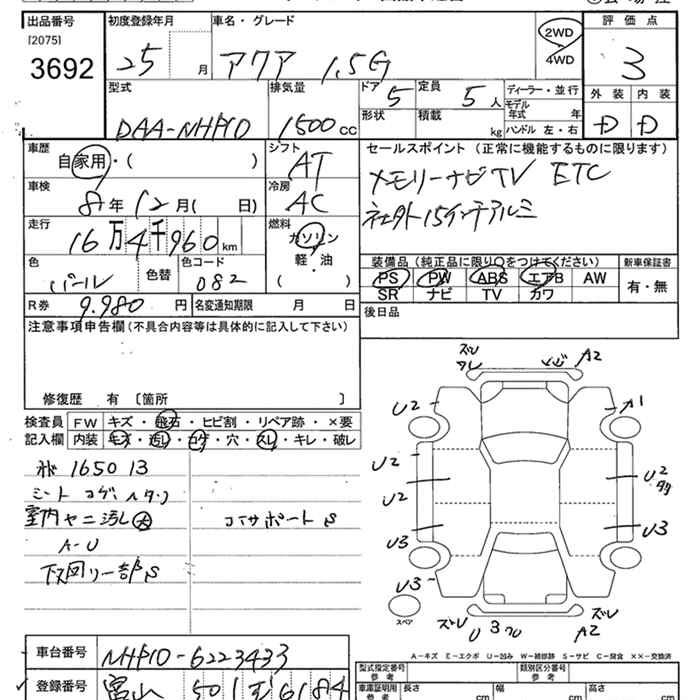 出品番号 初度登録年月 車名・グレード 評価点
[2075]
3692 25 月 アクア 1.5G 2WD 4WD 3
型式 排気量 ドア 定員 ディーラー・並行 外装 内装
DAA-NHP10 1500 cc 5 5人 モデル年式 年
形状 積載 kg ハンドル 左・右 D D
車歴 シフト セールスポイント (正常に機能するものに限ります)
自家用・( ) AT メモリーナビTV ETC
車検 冷房 社外15インチアルミ
8年12月( 日) AC
走行 燃料
16万4千960km ガソリン
軽・油
( )
色 色替 色コード 装備品 (純正品に限り○をつけてください) 新車保証書
パール 082 PS PW ABS エアB AW 有・無
SR ナビ TV カワ
R券 9.980円 名変通知期限 月 日 後日品
注意事項申告欄(不具合内容等は具体的に記入して下さい)
修復歴 有 〔箇所 〕
検査員 FW キズ・飛石・ヒビ割・リペア跡・×要
記入欄 内装 キズ・汚レ・コゲ・穴・スレ・キレ・破レ
165013
シートコゲ
室内ヤニ汚レ大 コアサポートS
A-U
下廻り一部S
ズレ A2
U2 A1
U2 U2
U2
U3 U3
U3
スペア
ズレ U3 ズレ
A2
A-キズ E-エクボ U-凹み W-補修跡 S-サビ C-腐食 ××-交換済
車台番号 NHP10-6223433
登録番号 富山 501 6184
型式指定番号 参考 類別区分番号 参考
車庫証明用 参考 長さ cm 幅 cm 高さ cm